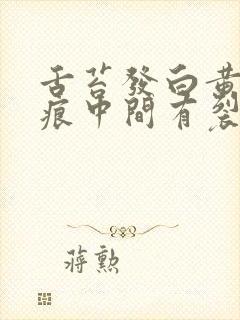 舌苔發白黃
痕中間有裂
蔣勲